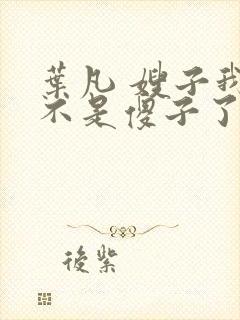 葉凡 嫂子我
不是傻子了
後紫